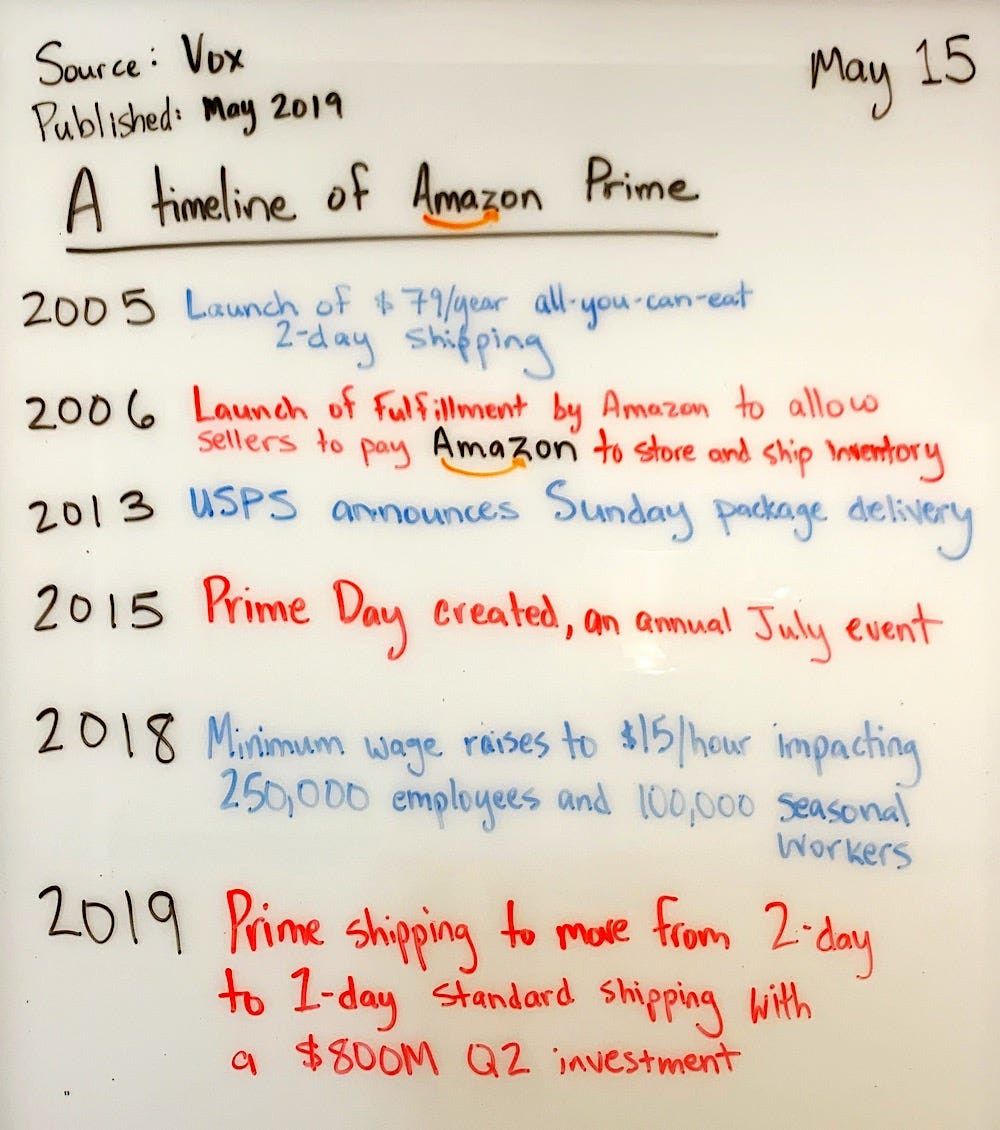 Source: Vox
May 15
Published: May 2019
A timeline of Amazon Prime
2005 Launch of $79/year all-you-can-eat
2-day shipping
2006 Launch of Fulfillment by Amazon to allow
sellers to pay Amazon to store and ship inventory
2013 USPS announces Sunday package delivery
2015 Prime Day created, an annual July event
2018 Minimum wage raises to $15/hour impacting
250,000 employees and 100,000 seasonal
workers
2019 Prime shipping to move from 2-day
to 1-day standard shipping with
a $800M Q2 investment